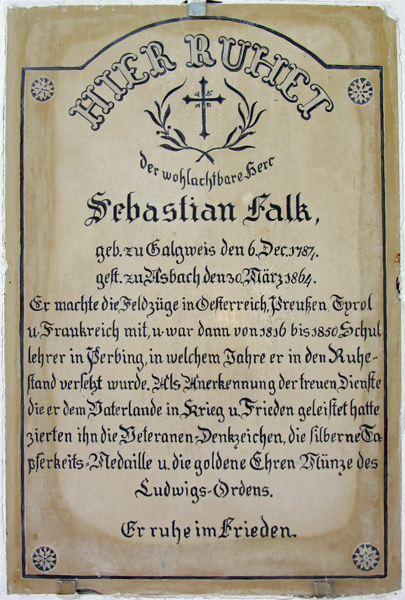 HIER RUHET
der wohlachtbare Herr
Sebastian Falk,
geb. zu Galgweis den 6. Dec. 1787.
gest. zu Asbach den 30. März 1864.
Er machte die Feldzüge in Oesterreich, Preußen, Tyrol
u. Frankreich mit, u. war dann von 1816 bis 1850 Schul
lehrer in Perbing, in welchem Jahre er in den Ruhe-
stand versetzt wurde. Als Anerkennung der treuen Dienste
die er dem Vaterlande in Krieg u. Frieden geleistet hatte
zierten ihn die Veteranen-Denkzeichen, die silberne Ta-
pferkeits-Medaille u. die goldene Ehren-Münze des
Ludwigs-Ordens.
Er ruhe im Frieden.